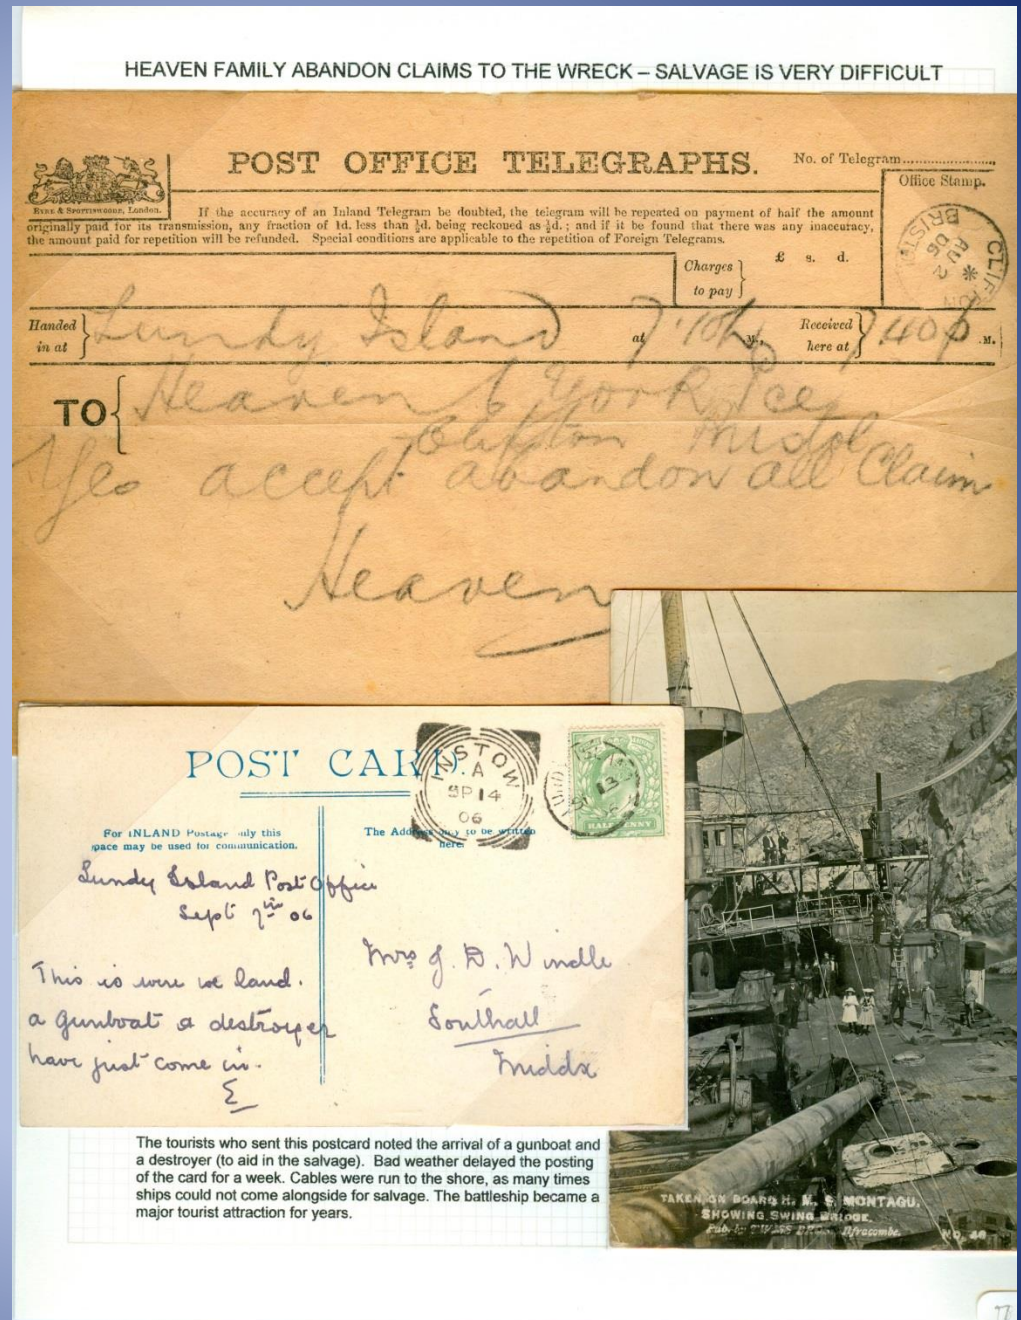 HEAVEN FAMILY ABANDON CLAIMS TO THE WRECK – SALVAGE IS VERY DIFFICULT
POST OFFICE TELEGRAPHS.
No. of Telegram
Office Stamp.
EYRE & SPOTTISWOODE, London.
If the accuracy of an Inland Telegram be doubted, the telegram will be repeated on payment of half the amount
originally paid for its transmission, any fraction of 1d. less than ½d. being reckoned as ½d.; and if it be found that there was any inaccuracy,
the amount paid for repetition will be refunded. Special conditions are applicable to the repetition of Foreign Telegrams.
CLIFTON BRISTOL
AU 2
06
Charges
to pay
£ s. d.
Handed
in at
Lundy Island
at 7.10p M.,
Received
here at
7.40p .M.
TO
Heaven 6 York
Clifton Bristol
Yes accept abandon all Claim
Heaven
POST CARD
INSTOW
A
SP 14
06
HALFPENNY
For INLAND Postage only this
space may be used for communication.
The Address only to be written
here.
Lundy Island Post Office
Sept 7th 06
This is were we land.
a gunboat a destroyer
have just come in.
E
Mrs J. D. Windle
Southall
Middx
The tourists who sent this postcard noted the arrival of a gunboat and
a destroyer (to aid in the salvage). Bad weather delayed the posting
of the card for a week. Cables were run to the shore, as many times
ships could not come alongside for salvage. The battleship became a
major tourist attraction for years.
TAKEN ON BOARD H. M. S. MONTAGU.
SHOWING SWING BRIDGE.
Pub. by Bros. Ilfracombe.
NO. 46